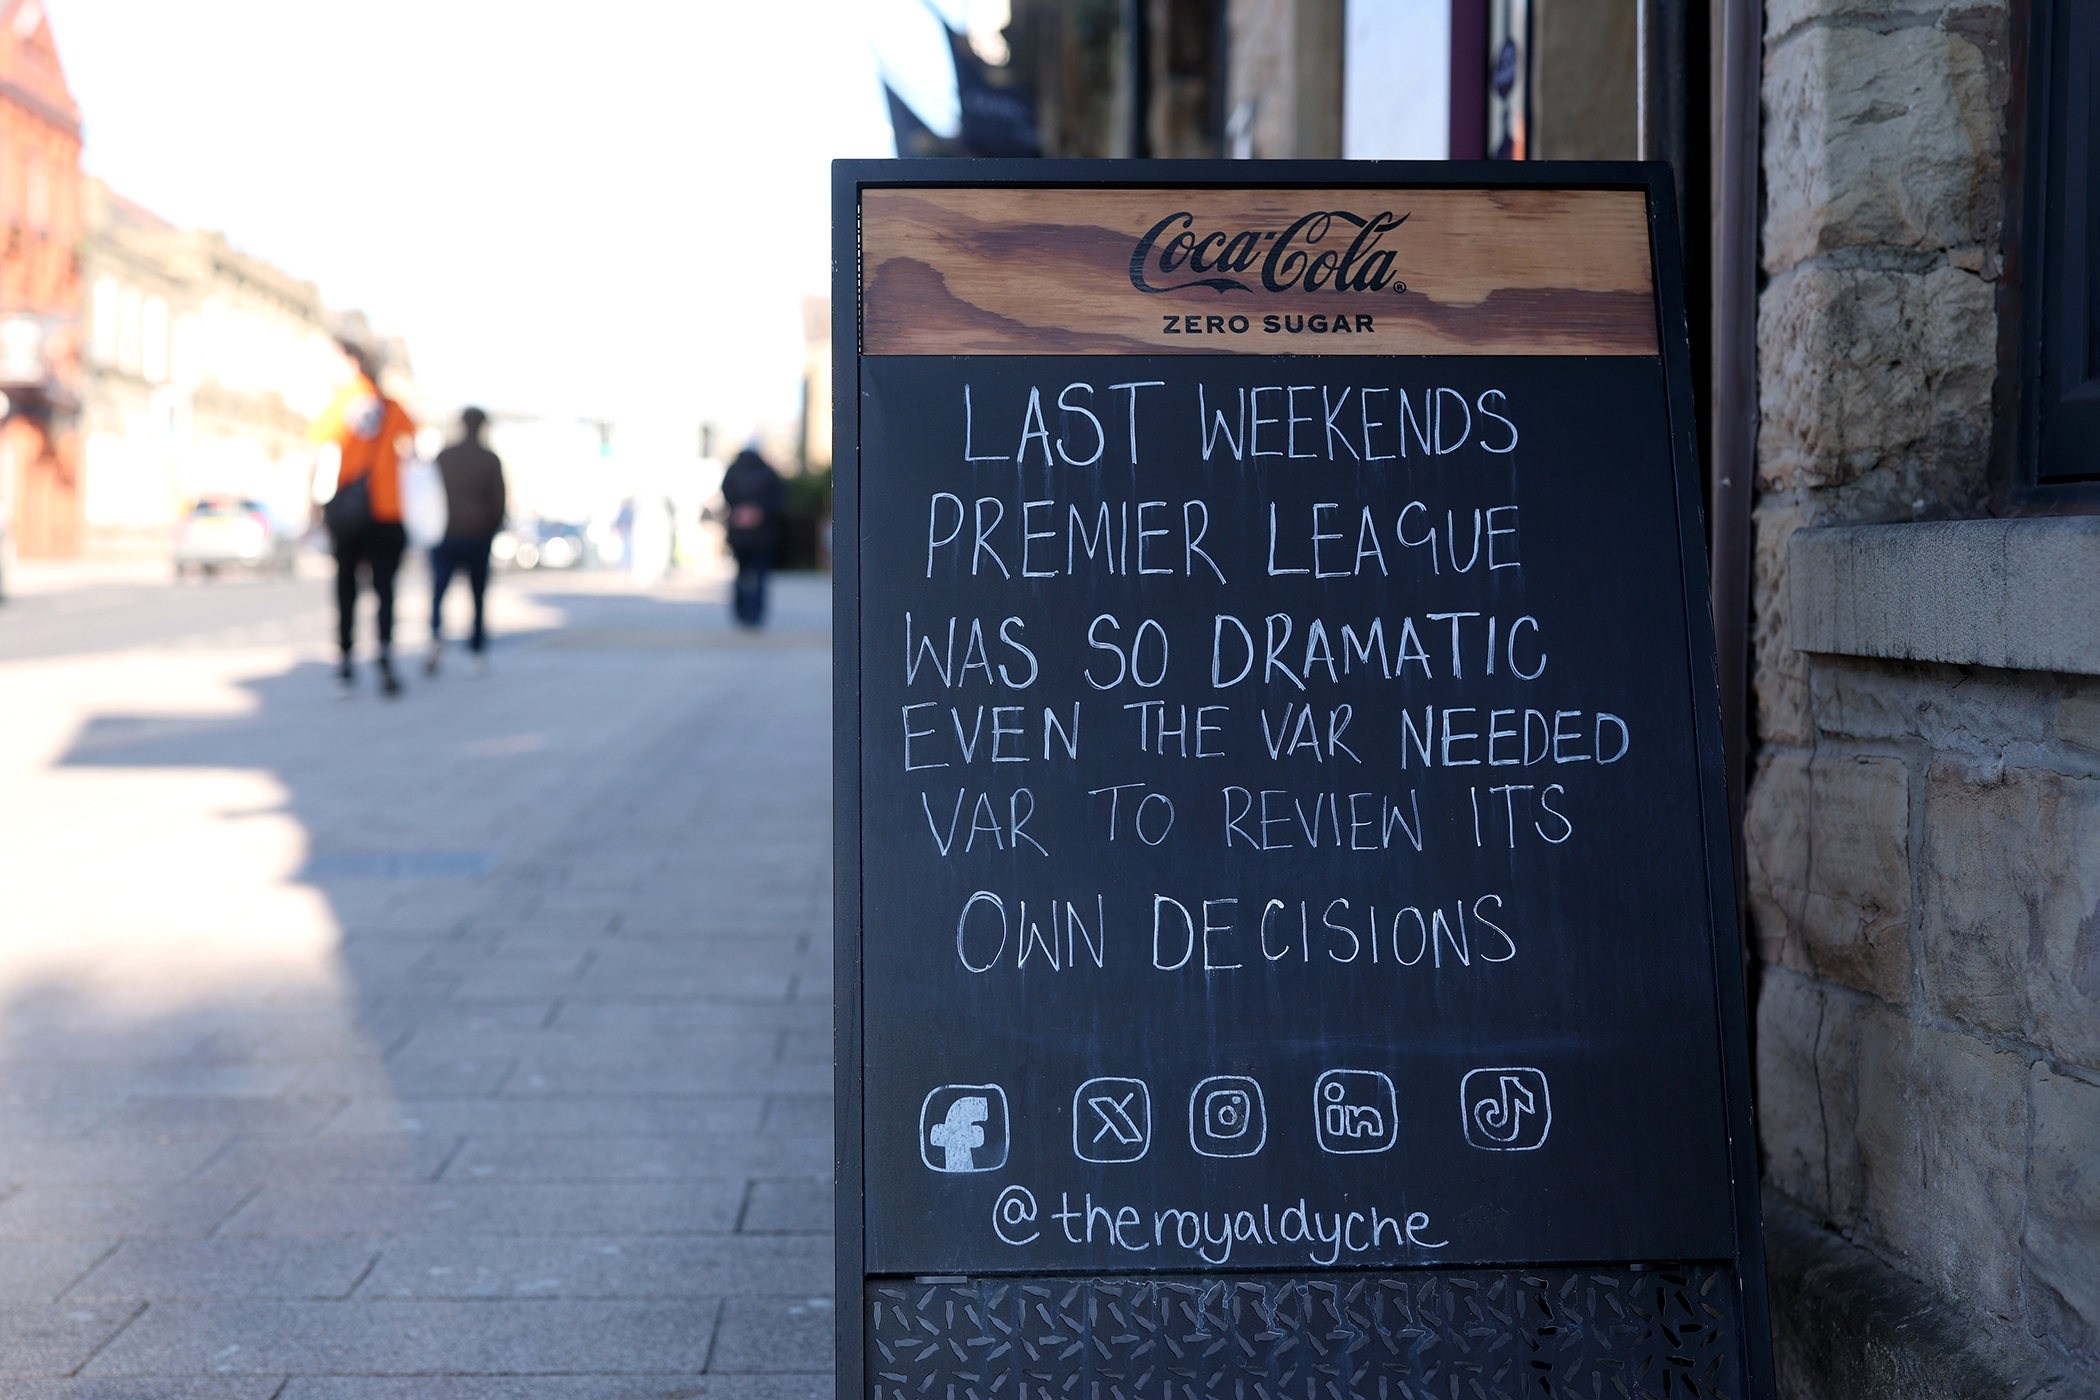 Coca-Cola®
ZERO SUGAR
LAST WEEKENDS
PREMIER LEAGUE
WAS SO DRAMATIC
EVEN THE VAR NEEDED
VAR TO REVIEW ITS
OWN DECISIONS
f X in
@theroyaldyche